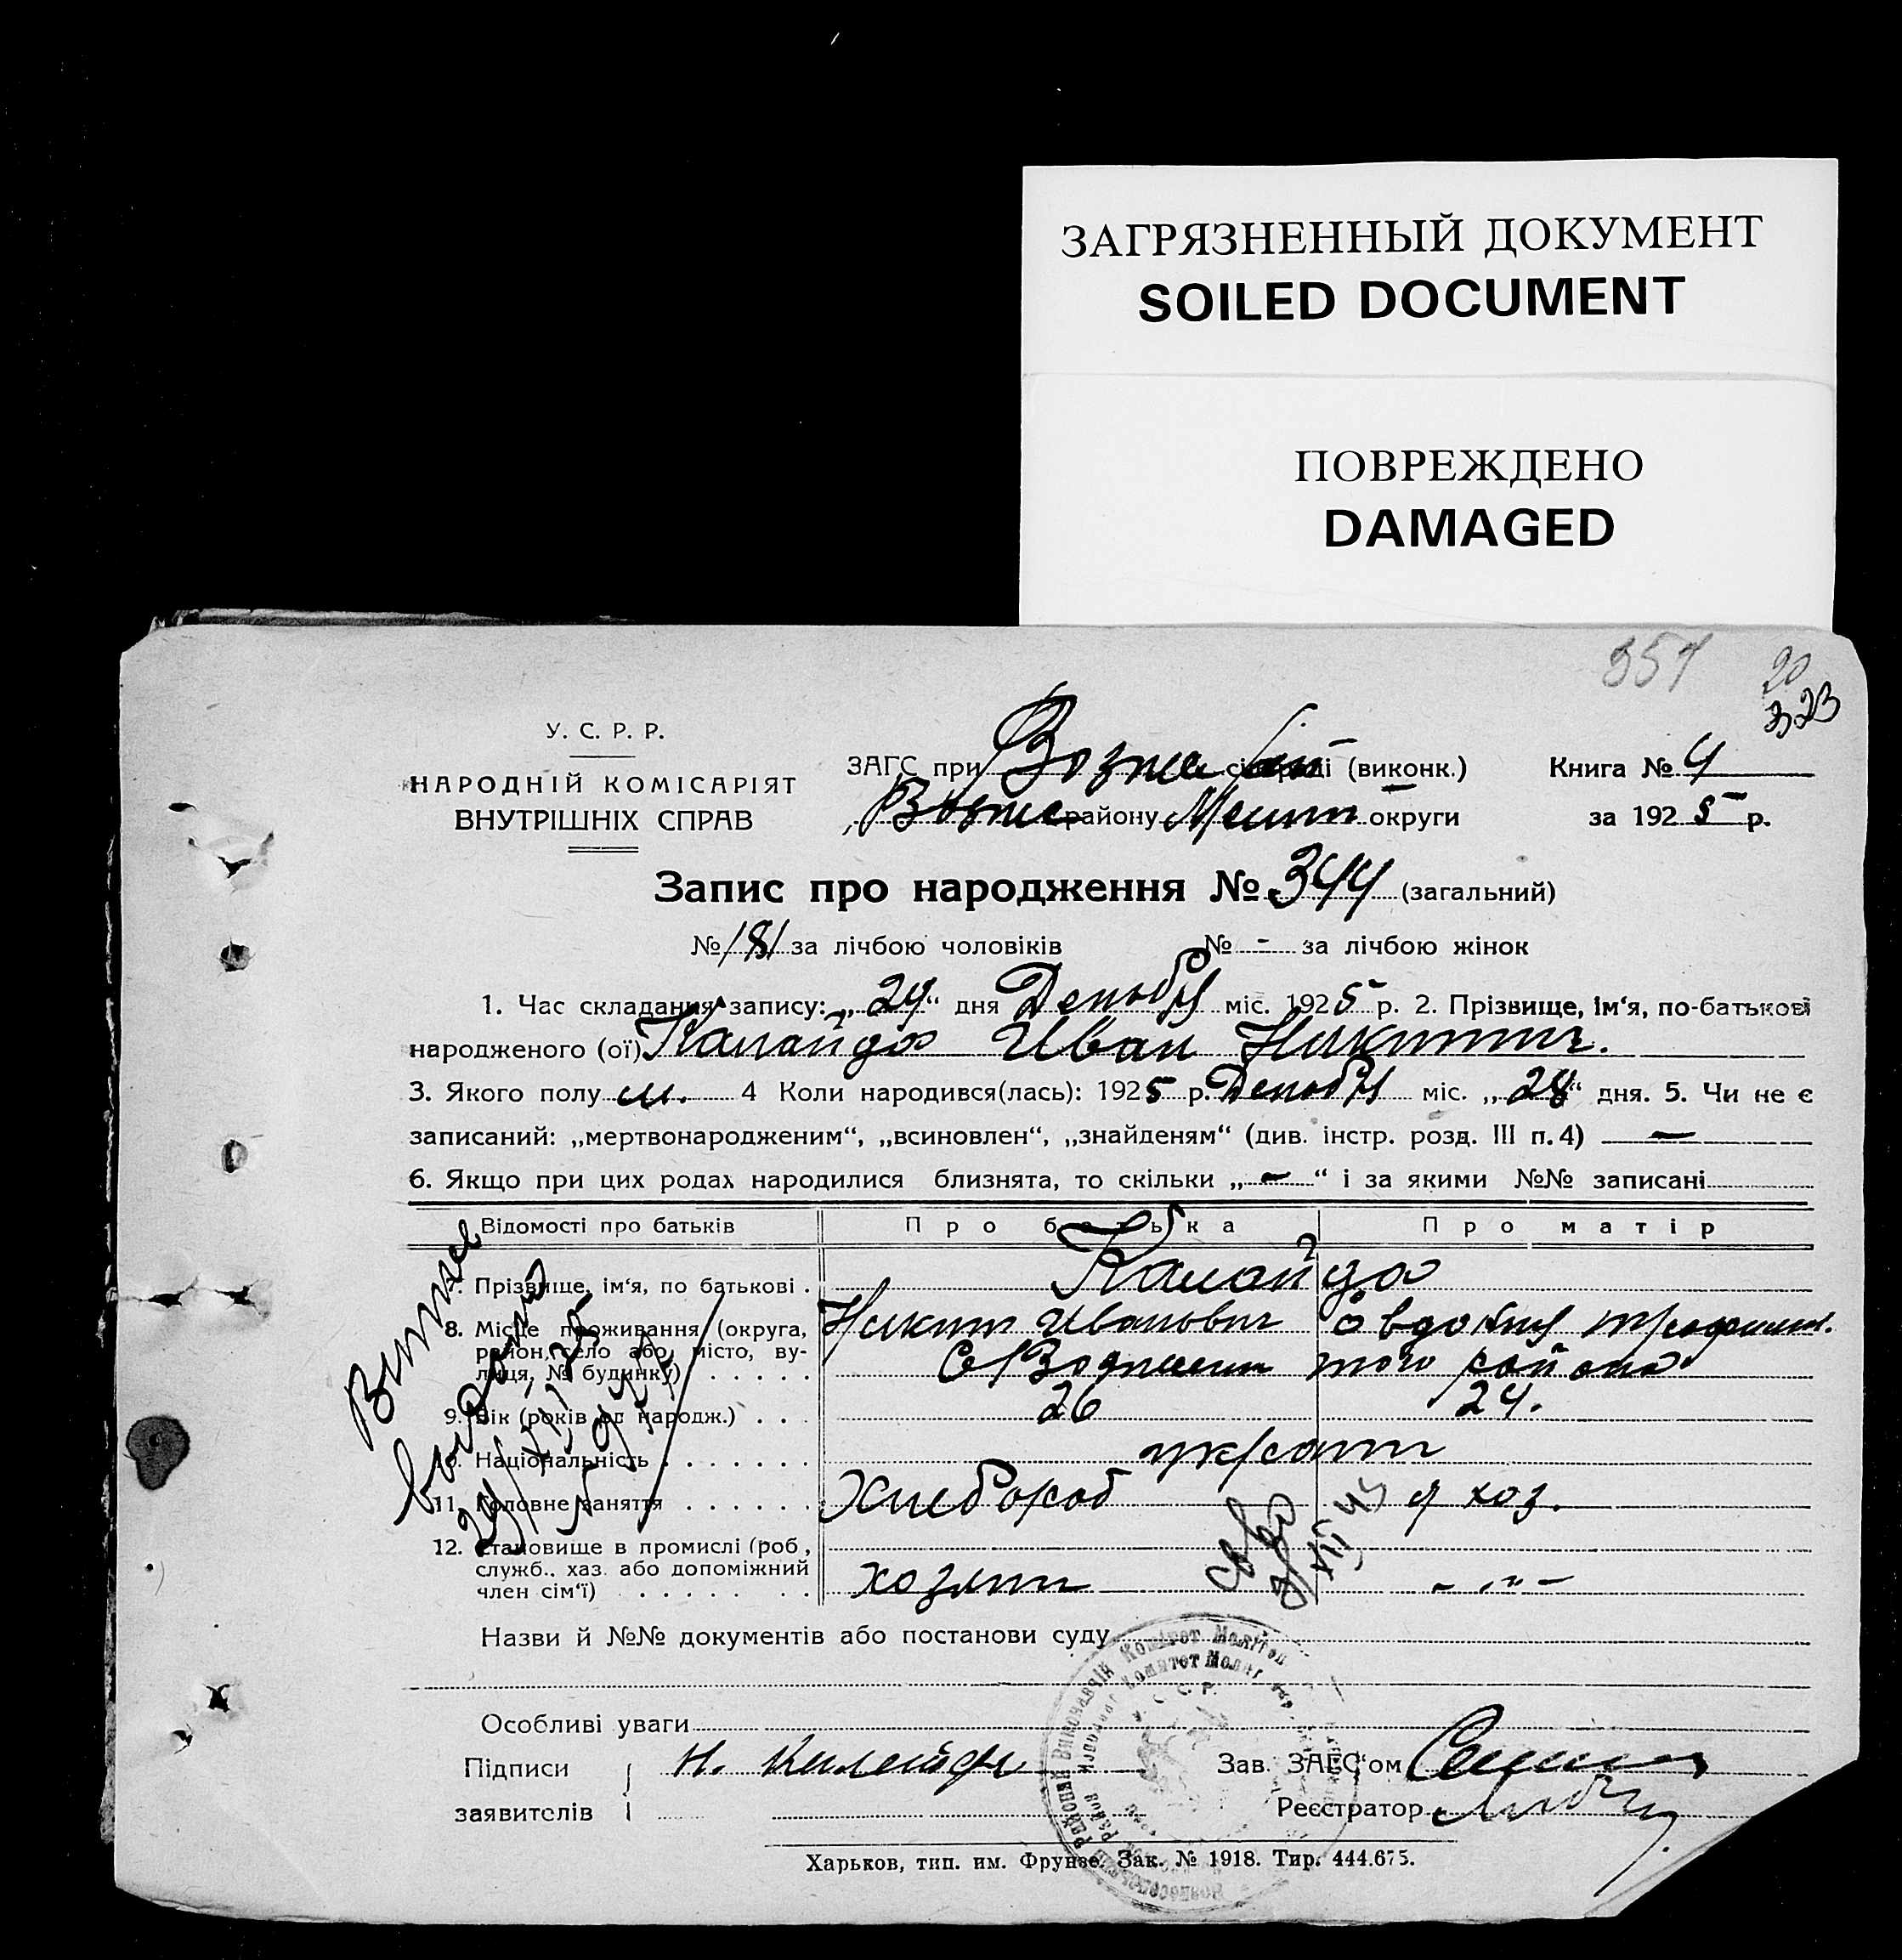 ЗАГРЯЗНЕННЫЙ ДОКУМЕНТ
SOILED DOCUMENT
ПОВРЕЖДЕНО
DAMAGED
357 20
323
У. С. Р. Р.
НАРОДНІЙ КОМІСАРІЯТ
ВНУТРІШНІХ СПРАВ
ЗАГС при Возне (виконк.)
Книга № 4
Возне району Мелит округи
за 1925 р.
Запис про народження № 344 (загальний)
№ 181 за лічбою чоловіків № - за лічбою жінок
1. Час складання запису: „29“ дня Декабря міс. 1925 р. 2. Прізвище, ім‘я, по-батькові
народженого (ої) Калайда Иван Никитич.
3. Якого полу м. 4 Коли народився(лась): 1925 р. Декабря міс. „28“ дня. 5. Чи не є
записаний: „мертвонародженим“, „всиновлен“, „знайденям“ (див. інстр. розд. III п. 4) —
6. Якщо при цих родах народилися близнята, то скільки „ - “ і за якими №№ записані
Відомості про батьків Про батька Про матір
7. Прізвище, ім‘я, по батькові . Калайда
8. Місце проживання (округа, район, село або місто, вулиця, № будинку) . . . . . Никит Иванович
с Вознесен того района
9. Вік (років від народж.) . . . 26 24.
10. Національність . . . . . . . украин
11. Головне заняття . . . . . . Хлебороб д хоз.
12. Становище в промислі (роб, служб.. хаз. або допоміжний член сім‘ї) . . . . . . . хозяин - „ -
Выпись выдана
Назви й №№ документів або постанови суду
Особливі уваги
Підписи Н. Калейда Зав. ЗАГС‘ом
заявителів Реєстратор
Харьков, тип. им. Фрунзе. Зак. № 1918. Тир. 444.675.